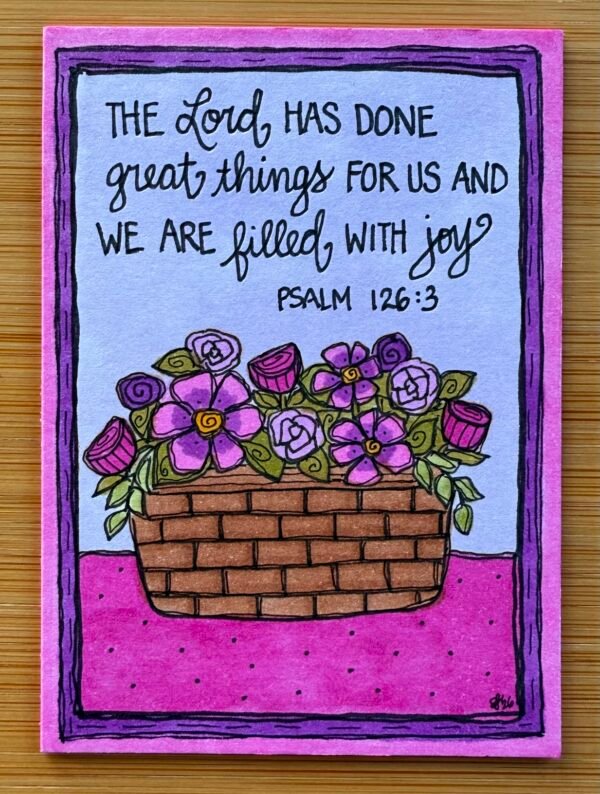 THE Lord HAS DONE
great things FOR US AND
WE ARE filled WITH joy
PSALM 126:3